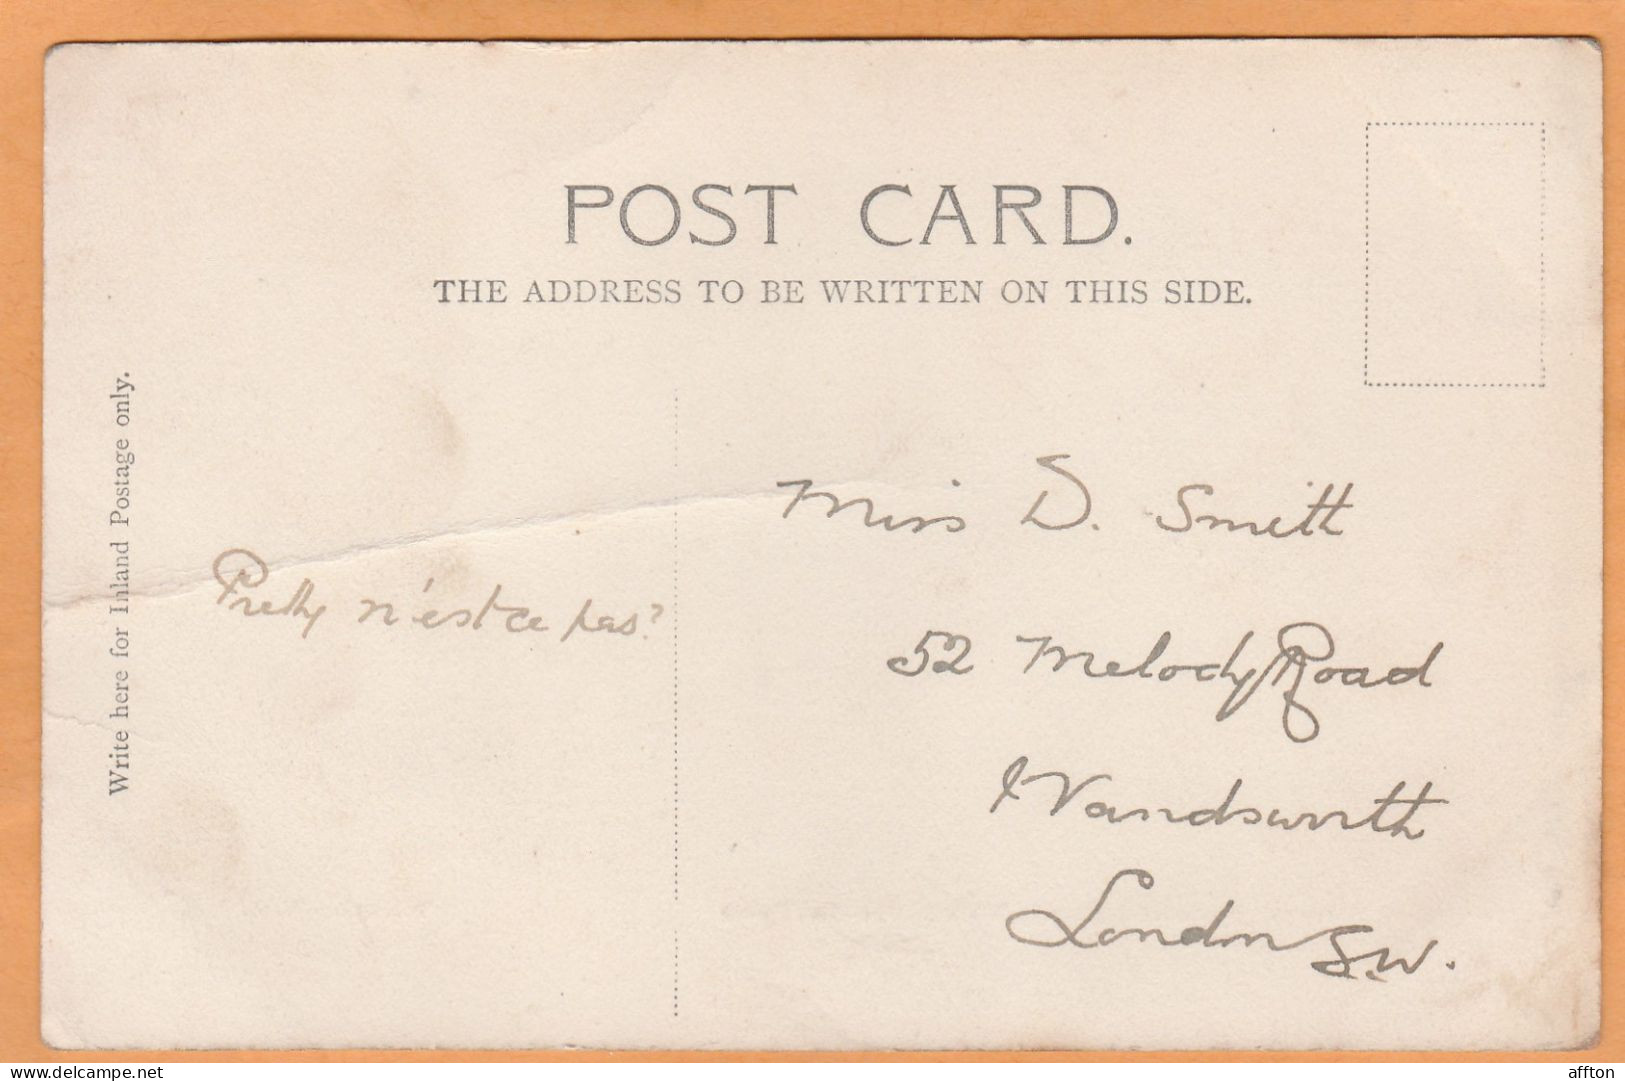 POST CARD.
THE ADDRESS TO BE WRITTEN ON THIS SIDE.
Write here for Inland Postage only.
Pretty n'est ce pas?
Miss D. Smith
52 Melody Road
Wandsworth
London S.W.
delcampe.net
affton